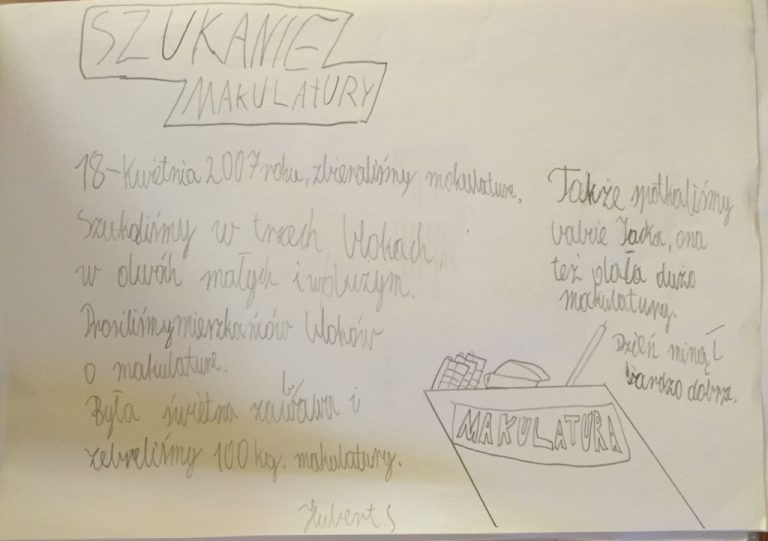 SZUKANIE
MAKULATURY
18-Kwietnia 2007 roku, zbieraliśmy makulature.
Szukaliśmy w trzech blokach,
w dwóh małych i w dużym.
Prosiliśmy mieszkańców bloków
o makulature.
Była świetna zabawa i
zebreliśmy 100 kg. makulatury.
Także spotkaliśmy
babcie Jacka, ona
też dała dużo
makulatury.
Dzień minął
bardzo dobrze.
MAKULATURA
Hubert S